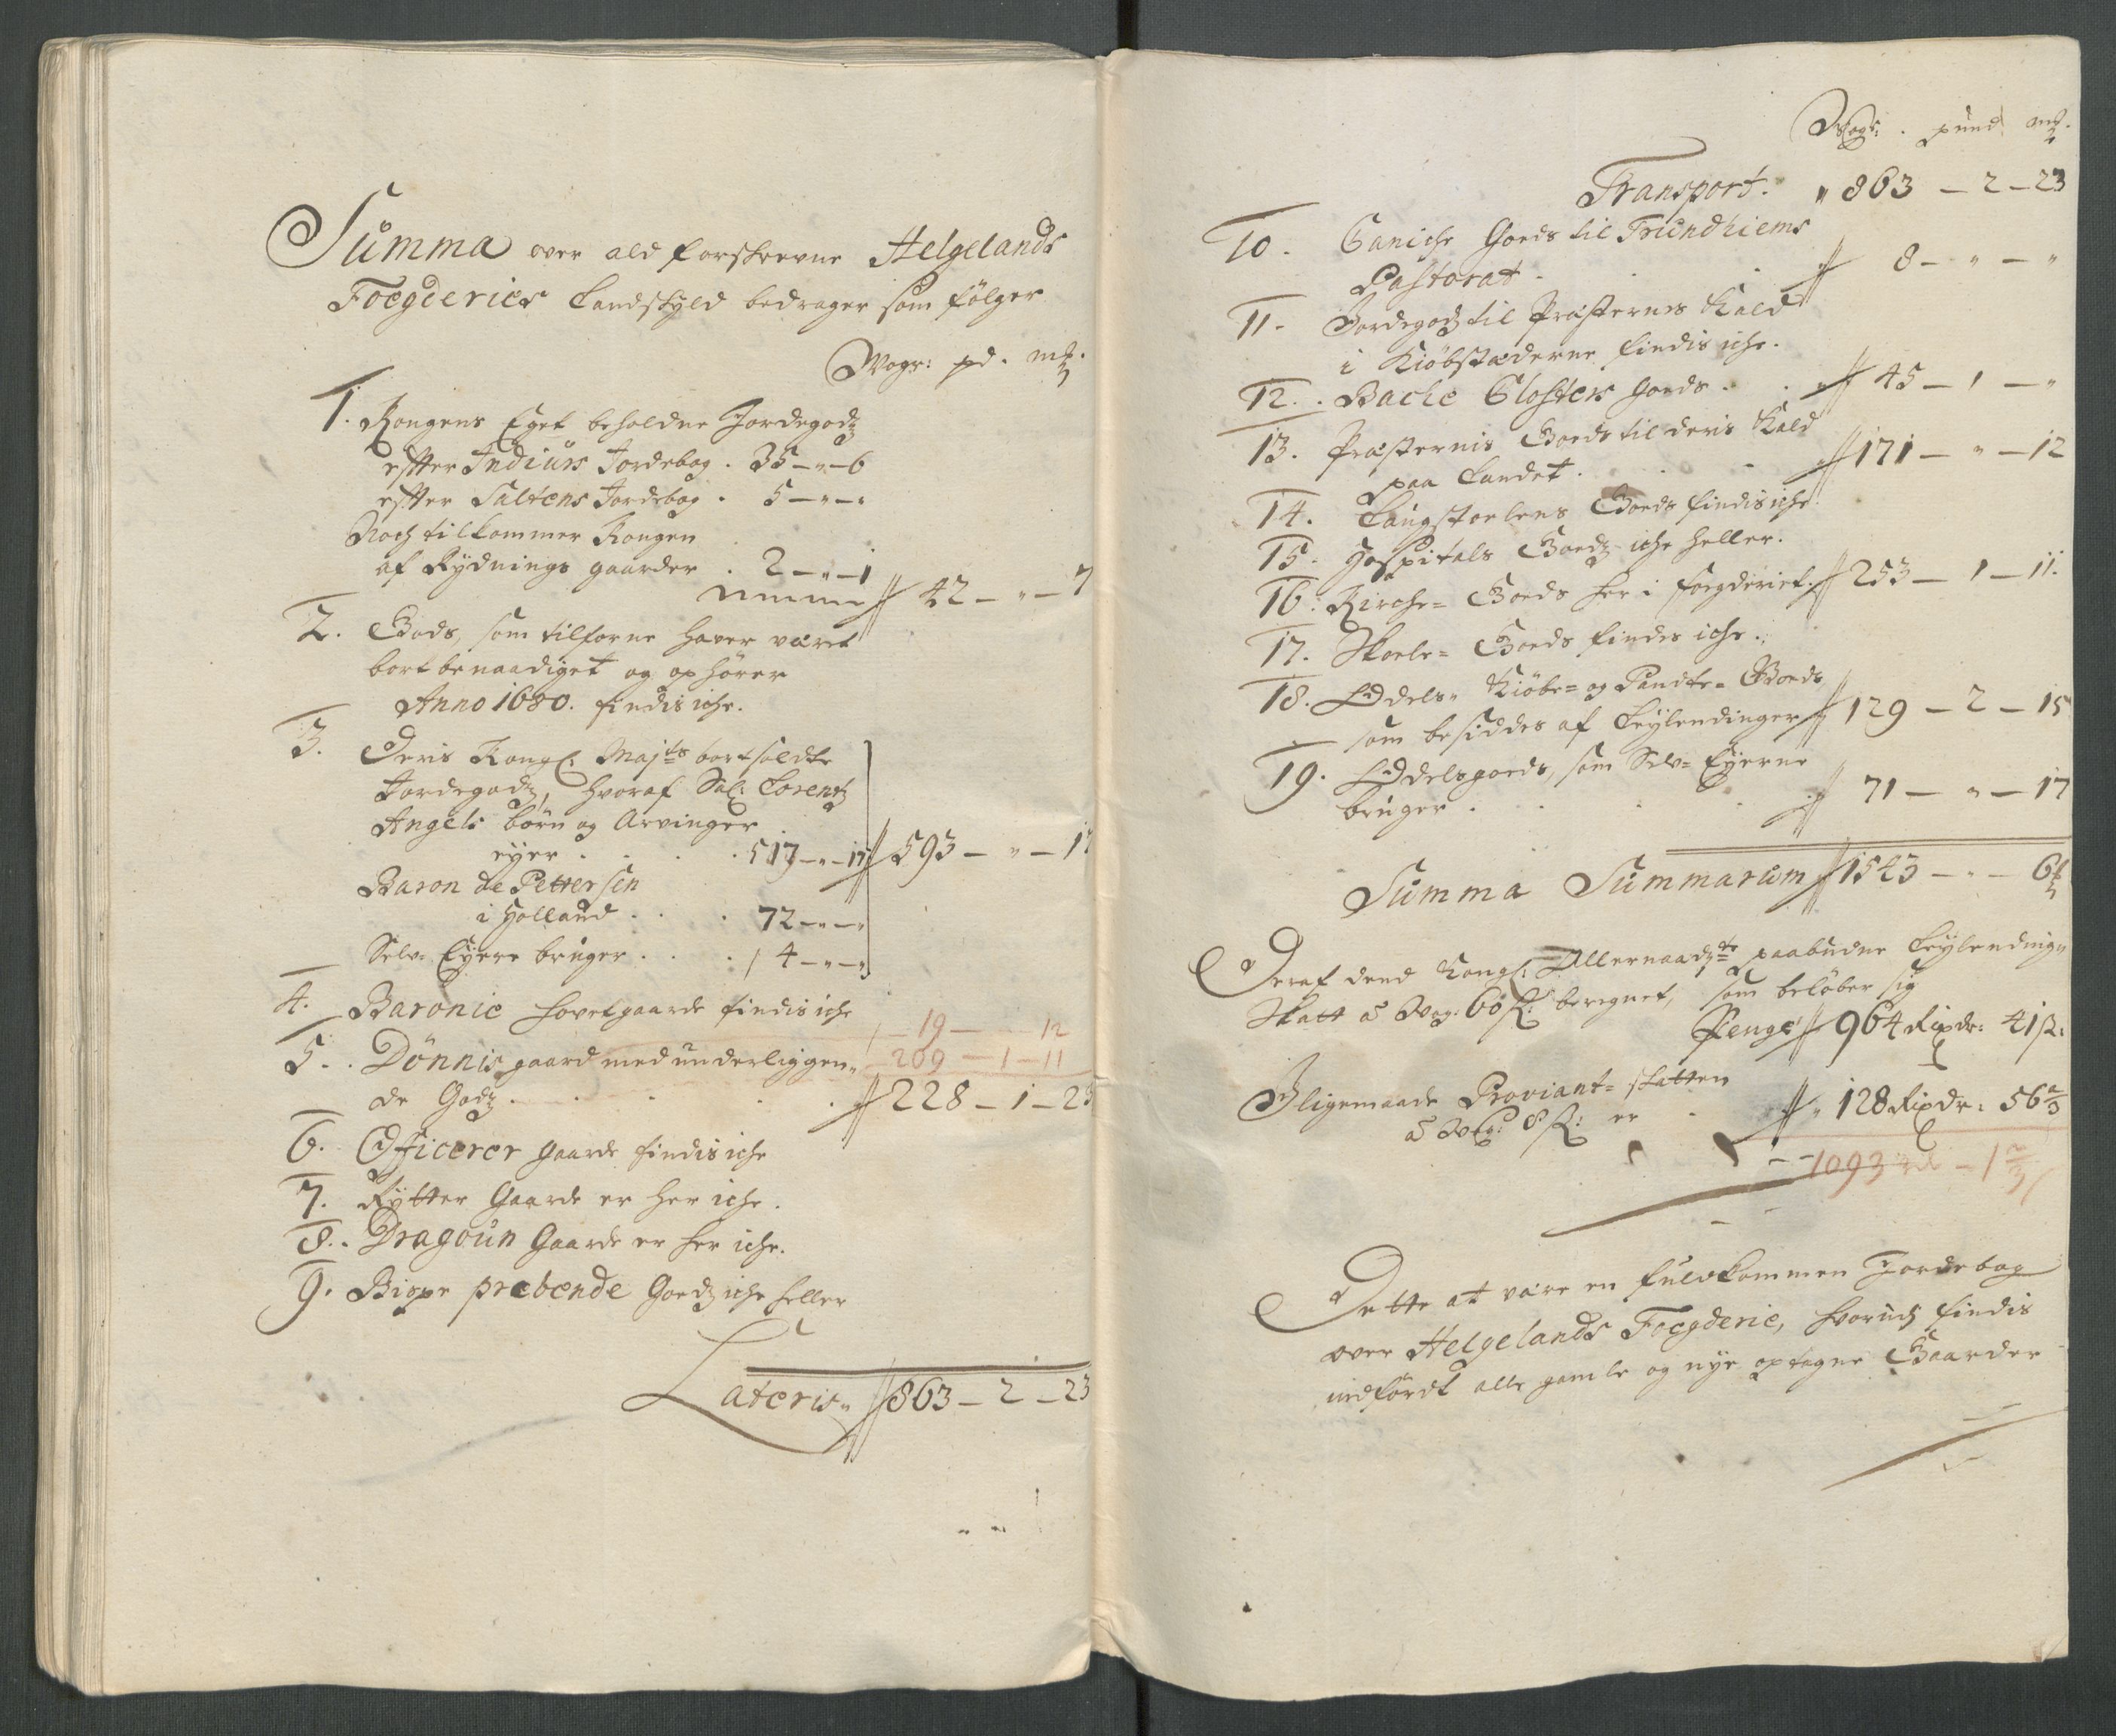 Summa over ald forskrevne Helgelands
Foegderies Landskyld bedrager som følger
Woger: pd. mk.
1. Kongens Eget beholdne Jordegodz
effter Indiurs Jordebog . 35 – „ – 6
effter Saltens Jordebog . 5 – „ – „
Noch tilkommer Kongen
af Rydnings gaarder . 2 – „ – 1
42 – „ – 7
2. Gods, som tilforne haver været
bortbenaadiget og ophører
Anno 1680. findis iche.
3. Deris Kongl: Majts bortsoldte
Jordegodz, hvoraf Sal: Lorentz
Angels börn og Arvinger
eyer . . . . 517 – „ – 17 593 – „ – 17
Baron de Pettersen
i Holland . . . 72 – „ – „
Selv-Eyere bruger . . . 4 – „ – „
4. Baronie hovetgaarde findis iche
19 – – 12
5. Dönnis gaard med underliggen„ 209 – 1 – 11
de Godz . . . . 228 – 1 – 23
6. Officerer gaarde findis iche
7. Rytter Gaarde er her iche.
8. Dragoun Gaarde er her iche.
9. Bispe præbende Goedz iche heller
Lateris„ 863 – 2 – 23
Woger: . pund mk.
Transport. „ 863 – 2 – 23
10. Caniche Goeds til Trundhiems
Pastorat . . . 8 – „ – „
11. Jordegodz til Præsternes Kald
i Kiöbstæderne findis iche.
12. Bache Closters goeds . . 45 – 1 – „
13. Præsternis Goeds til deris Kald
paa Landet . . . 171 – „ – 12
14. Laugstoelens Goeds findis iche
15. Hospitals Goedz iche heller.
16. Kirche- Goeds her i foegderiet. 253 – 1 – 11.
17. Skoele- Goeds findes iche.
18. Oddels- Kiöbe- og Pandte- Goeds,
som besiddes af Leylendinger 129 – 2 – 15
19. Oddelsgoeds, som Selv-Eyerne
bruger . . . 71 – „ – 17
Summa Summarum 1543 – „ – 6 mk
Deraf dend Kongl: Allernaadte paabudne Leylending„
Skatt à Wog: 60 s: beregnet, som beløber sig
Penge 964 Rixdr: 41 s:
Iligemaade Proviant- skatten
à Wog: 8 s: er . . 128 Rixdr: 56 2/3
1093 rd – 1 2/3
Dette at være en fuldkommen Jordebog
over Helgelands Foegderie, hvorudj findis
indfördt alle gamle og nye optagne Gaarder